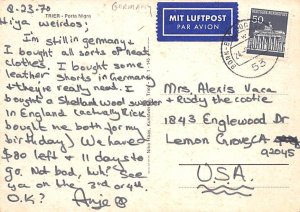 GERMANY
8-23-70
TRIER - Porta Nigra
Hiya weirdos!
I'm still in germany &
I bought all sorts of neat
clothes. I bought some
leather shorts in Germany
& they're really neat. I
bought a Shetland wool sweater
in England (actually Rick
bought me both for my
birthday) We have
$80 left & 11 days to
go. Not bad, huh? See
ya on the 3rd or 4th.
O.K? Anje
MIT LUFTPOST
PAR AVION
50
DEUTSCHE BUNDESPOST
53
Mrs. Alexis Vaca
& Rudy the cootie
1843 Englewood Dr
Lemon Grove, CA
92045
U.S.A.